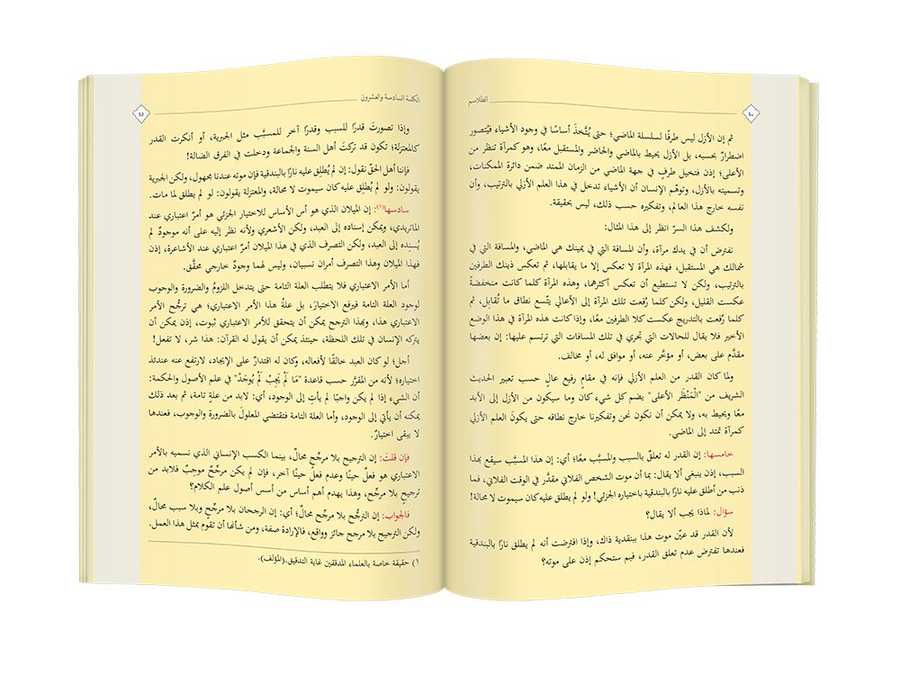 الطلاسم
٤٠
ثم إن الأزل ليس طرفًا لسلسلة الماضي؛ حتى يُتَّخذَ أساسًا في وجود الأشياء فيُتصور
اضطرارٌ بحسبه، بل الأزل يحيط بالماضي والحاضر والمستقبل معًا، وهو كمرآة تنظر من
الأعلى؛ إذن فتخيل طرفٍ في جهة الماضي من الزمان الممتد ضمن دائرة الممكنات،
وتسميته بالأزل، وتوهّم الإنسان أن الأشياء تدخل في هذا العلم الأزلي بالترتيب، وأن
نفسه خارج هذا العالم، وتفكيره حسب ذلك، ليس بحقيقة.
ولكشف هذا السرّ انظر إلى هذا المثال:
نفترض أن في يدك مرآة، وأن المسافة التي في يمينك هي الماضي، والمسافة التي في
شمالك هي المستقبل، فهذه المرآة لا تعكس إلا ما يقابلها، ثم تعكس ذينك الطرفين
بالترتيب، ولكن لا تستطيع أن تعكس أكثرهما، وهذه المرآة كلما كانت منخفضةً
عكست القليل، ولكن كلما رُفعت تلك المرآة إلى الأعالي يتّسع نطاق ما تُقابل، ثم
كلما رُفعت بالتدريج عكست كلا الطرفين معًا، وإذا كانت هذه المرآة في هذا الوضع
الأخير فلا يقال للحالات التي تجري في تلك المسافات التي ترتسم عليها: إن بعضها
مقدَّم على بعض، أو مؤخّر عنه، أو موافق له، أو مخالف.
ولما كان القدر من العلم الأزلي فإنه في مقامٍ رفيع عالٍ حسب تعبير الحديث
الشريف من "الْمَنْظَر الأعلى" يضم كل شيء كان وما سيكون من الأزل إلى الأبد
معًا ويحيط به، ولا يمكن أن نكون نحن وتفكيرنا خارج نطاقه حتى يكونَ العلم الأزلي
كمرآة تمتد إلى الماضي.
خامسها: إن القدر له تعلقٌ بالسبب والمسبَّب معًا؛ أي: إن هذا المسبَّب سيقع بهذا
السبب، إذن ينبغي ألا يقال: بما أن موت الشخص الفلاني مقدَّر في الوقت الفلاني، فما
ذنب من أطلق عليه نارًا بالبندقية باختياره الجزئي! ولو لم يطلق عليه كان سيموت لا محالة!
سؤال: لماذا يجب ألا يقال؟
لأن القدر قد عيّن موت هذا ببندقية ذاك، وإذا افترضت أنه لم يطلق نارًا بالبندقية
فعندها تفترض عدم تعلق القدر، فبم ستحكم إذن على موته؟
الكلمة السادسة والعشرون
٤١
وإذا تصورتَ قدرًا للسبب وقدرًا آخر للمسبَّب مثل الجبرية، أو أنكرت القدر
كالمعتزلة؛ تكون قد تركتَ أهل السنة والجماعة ودخلت في الفرق الضالة!
فإننا أهلَ الحقّ نقول: إن لم يُطلِق عليه نارًا بالبندقية فإن موته عندنا مجهول، ولكن الجبرية
يقولون: ولو لم يُطلِق عليه كان سيموت لا محالة، والمعتزلة يقولون: لو لم يطلق لما مات.
سادسها(١): إن الميلان الذي هو أس الأساس للاختيار الجزئي هو أمرٌ اعتباري عند
الماتريدي، ويمكن إسناده إلى العبد، ولكن الأشعري ولأنه نظر إليه على أنه موجودٌ لم
يُسنده إلى العبد، ولكن التصرف الذي في هذا الميلان أمرٌ اعتباري عند الأشاعرة، إذن
فهذا الميلان وهذا التصرف أمران نسبيان، وليس لهما وجودٌ خارجي محقَّق.
أما الأمر الاعتباري فلا يتطلب العلة التامة حتى يتدخل اللزومُ والضرورة والوجوب
لوجود العلة التامة فيرفع الاختيارَ، بل علةُ هذا الأمر الاعتباري؛ هي ترجُّح الأمر
الاعتباري هذا، وبهذا الترجح يمكن أن يتحقق للأمر الاعتباري ثبوت، إذن يمكن أن
يتركه الإنسان في تلك اللحظة، حينئذٍ يمكن أن يقول له القرآن: هذا شر، لا تفعل!
أجل؛ لو كان العبد خالقًا لأفعاله، وكان له اقتدارٌ على الإيجاد، لارتفع عنه عندئذ
اختياره؛ لأنه من المقرَّر حسب قاعدة "مَا لَمْ يَجِبْ لَمْ يُوجَدْ" في علم الأصول والحكمة:
أن الشيء إذا لم يكن واجبًا لم يأتِ إلى الوجود، أي: لابد من علةٍ تامة، ثم بعد ذلك
يمكنه أن يأتي إلى الوجود، وأما العلة التامة فتقتضي المعلول بالضرورة والوجوب، فعندها
لا يبقى اختيارٌ.
فإن قلتَ: إن الترجيح بلا مرجّحٍ محالٌ، بينما الكسب الإنساني الذي نسميه بالأمر
الاعتباري هو فعلٌ حينًا وعدم فعلٍ حينًا آخر، فإن لم يكن مرجّحٌ موجِبٌ فلابد من
ترجيحٍ بلا مرجّح، وهذا يهدم أهم أساس من أسس أصول علم الكلام؟
فالجواب: إن الترجُّح بلا مرجّح محالٌ؛ أي: إن الرجحان بلا مرجّحٍ وبلا سبب محالٌ،
ولكن الترجيح بلا مرجح جائز وواقع، فالإرادة صفة، ومن شأنها أن تقوم بمثل هذا العمل.
١) حقيقة خاصة بالعلماء المدققين غاية التدقيق.(المؤلف).